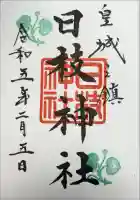 皇城之鎮
日枝神社
令和五年二月五日